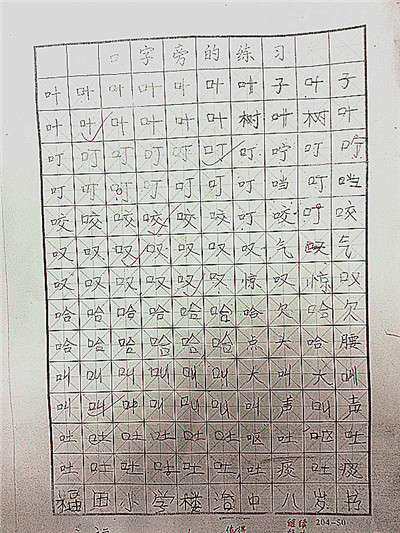 口字旁的练习
叶叶叶叶叶叶叶子叶子
叶叶叶叶叶叶树叶树叶
叮叮叮叮叮叮叮咛叮咛
叮叮叮叮叮叮叮叮
咬咬咬咬咬咬叮咬叮咬
叹叹叹叹叹叹叹气叹气
叹叹叹叹叹叹惊叹惊叹
哈哈哈哈哈哈哈欠哈欠
哈哈哈哈哈哈点头哈腰
叫叫叫叫叫叫大叫大叫
叫叫叫叫叫叫叫声叫声
吐吐吐吐吐吐呕吐呕吐
吐吐吐吐吐吐吐痰吐痰
福田小学楼治中八岁书
继续 204-50